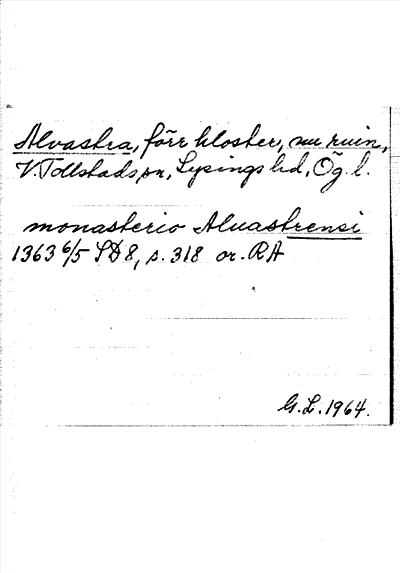 Alvastra, förr kloster, nu ruin,
V. Tollstads sn, Lysings hd, Ög. l.
monasterio Aluastrensi
1363 6/5 SD 8, s. 318 or. RA
G. L. 1964.